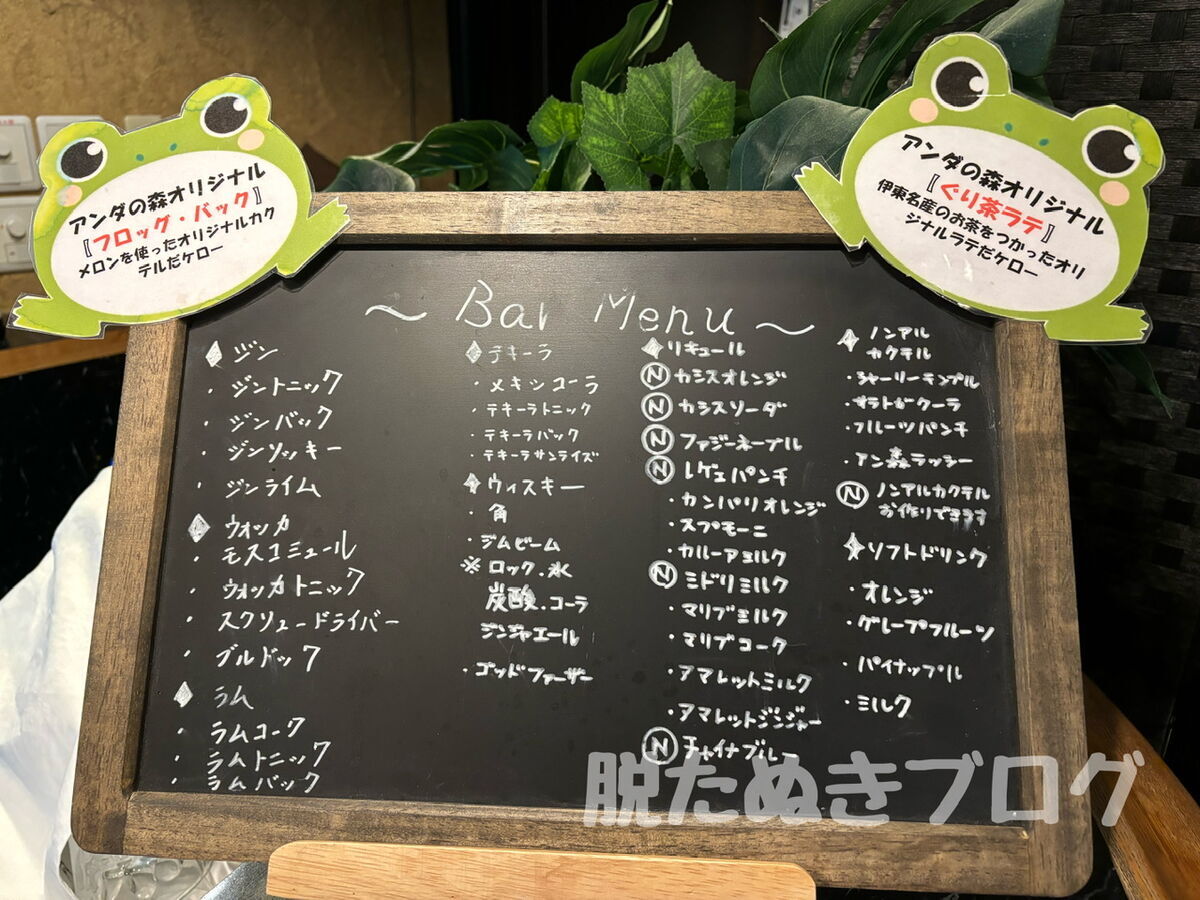 アンダの森オリジナル
『フロッグ・バック』
メロンを使ったオリジナルカク
テルだケロー
アンダの森オリジナル
『ぐり茶ラテ』
伊東名産のお茶をつかったオリ
ジナルラテだケロー
～ Bar Menu ～
ジン
・ジントニック
・ジンバック
・ジンリッキー
・ジンライム
ウォッカ
・モスコミュール
・ウォッカトニック
・スクリュードライバー
・ブルドック
ラム
・ラムコーク
・ラムトニック
・ラムバック
テキーラ
・メキシコーラ
・テキーラトニック
・テキーラバック
・テキーラサンライズ
ウィスキー
・角
・ジムビーム
※ロック・水
炭酸・コーラ
ジンジャエール
・ゴッドファーザー
リキュール
Ⓝ カシスオレンジ
Ⓝ カシスソーダ
Ⓝ ファジーネーブル
Ⓝ レゲエパンチ
・カンパリオレンジ
・スプモーニ
・カルーアミルク
Ⓝ ミドリミルク
・マリブミルク
・マリブコーク
・アマレットミルク
・アマレットジンジャー
Ⓝ チャイナブルー
ノンアル
カクテル
・シャーリーテンプル
・サラトガクーラ
・フルーツパンチ
・アン森ラッシー
Ⓝ ノンアルカクテル
お作りできます
ソフトドリンク
・オレンジ
・グレープフルーツ
・パイナップル
・ミルク
脱たぬきブログ